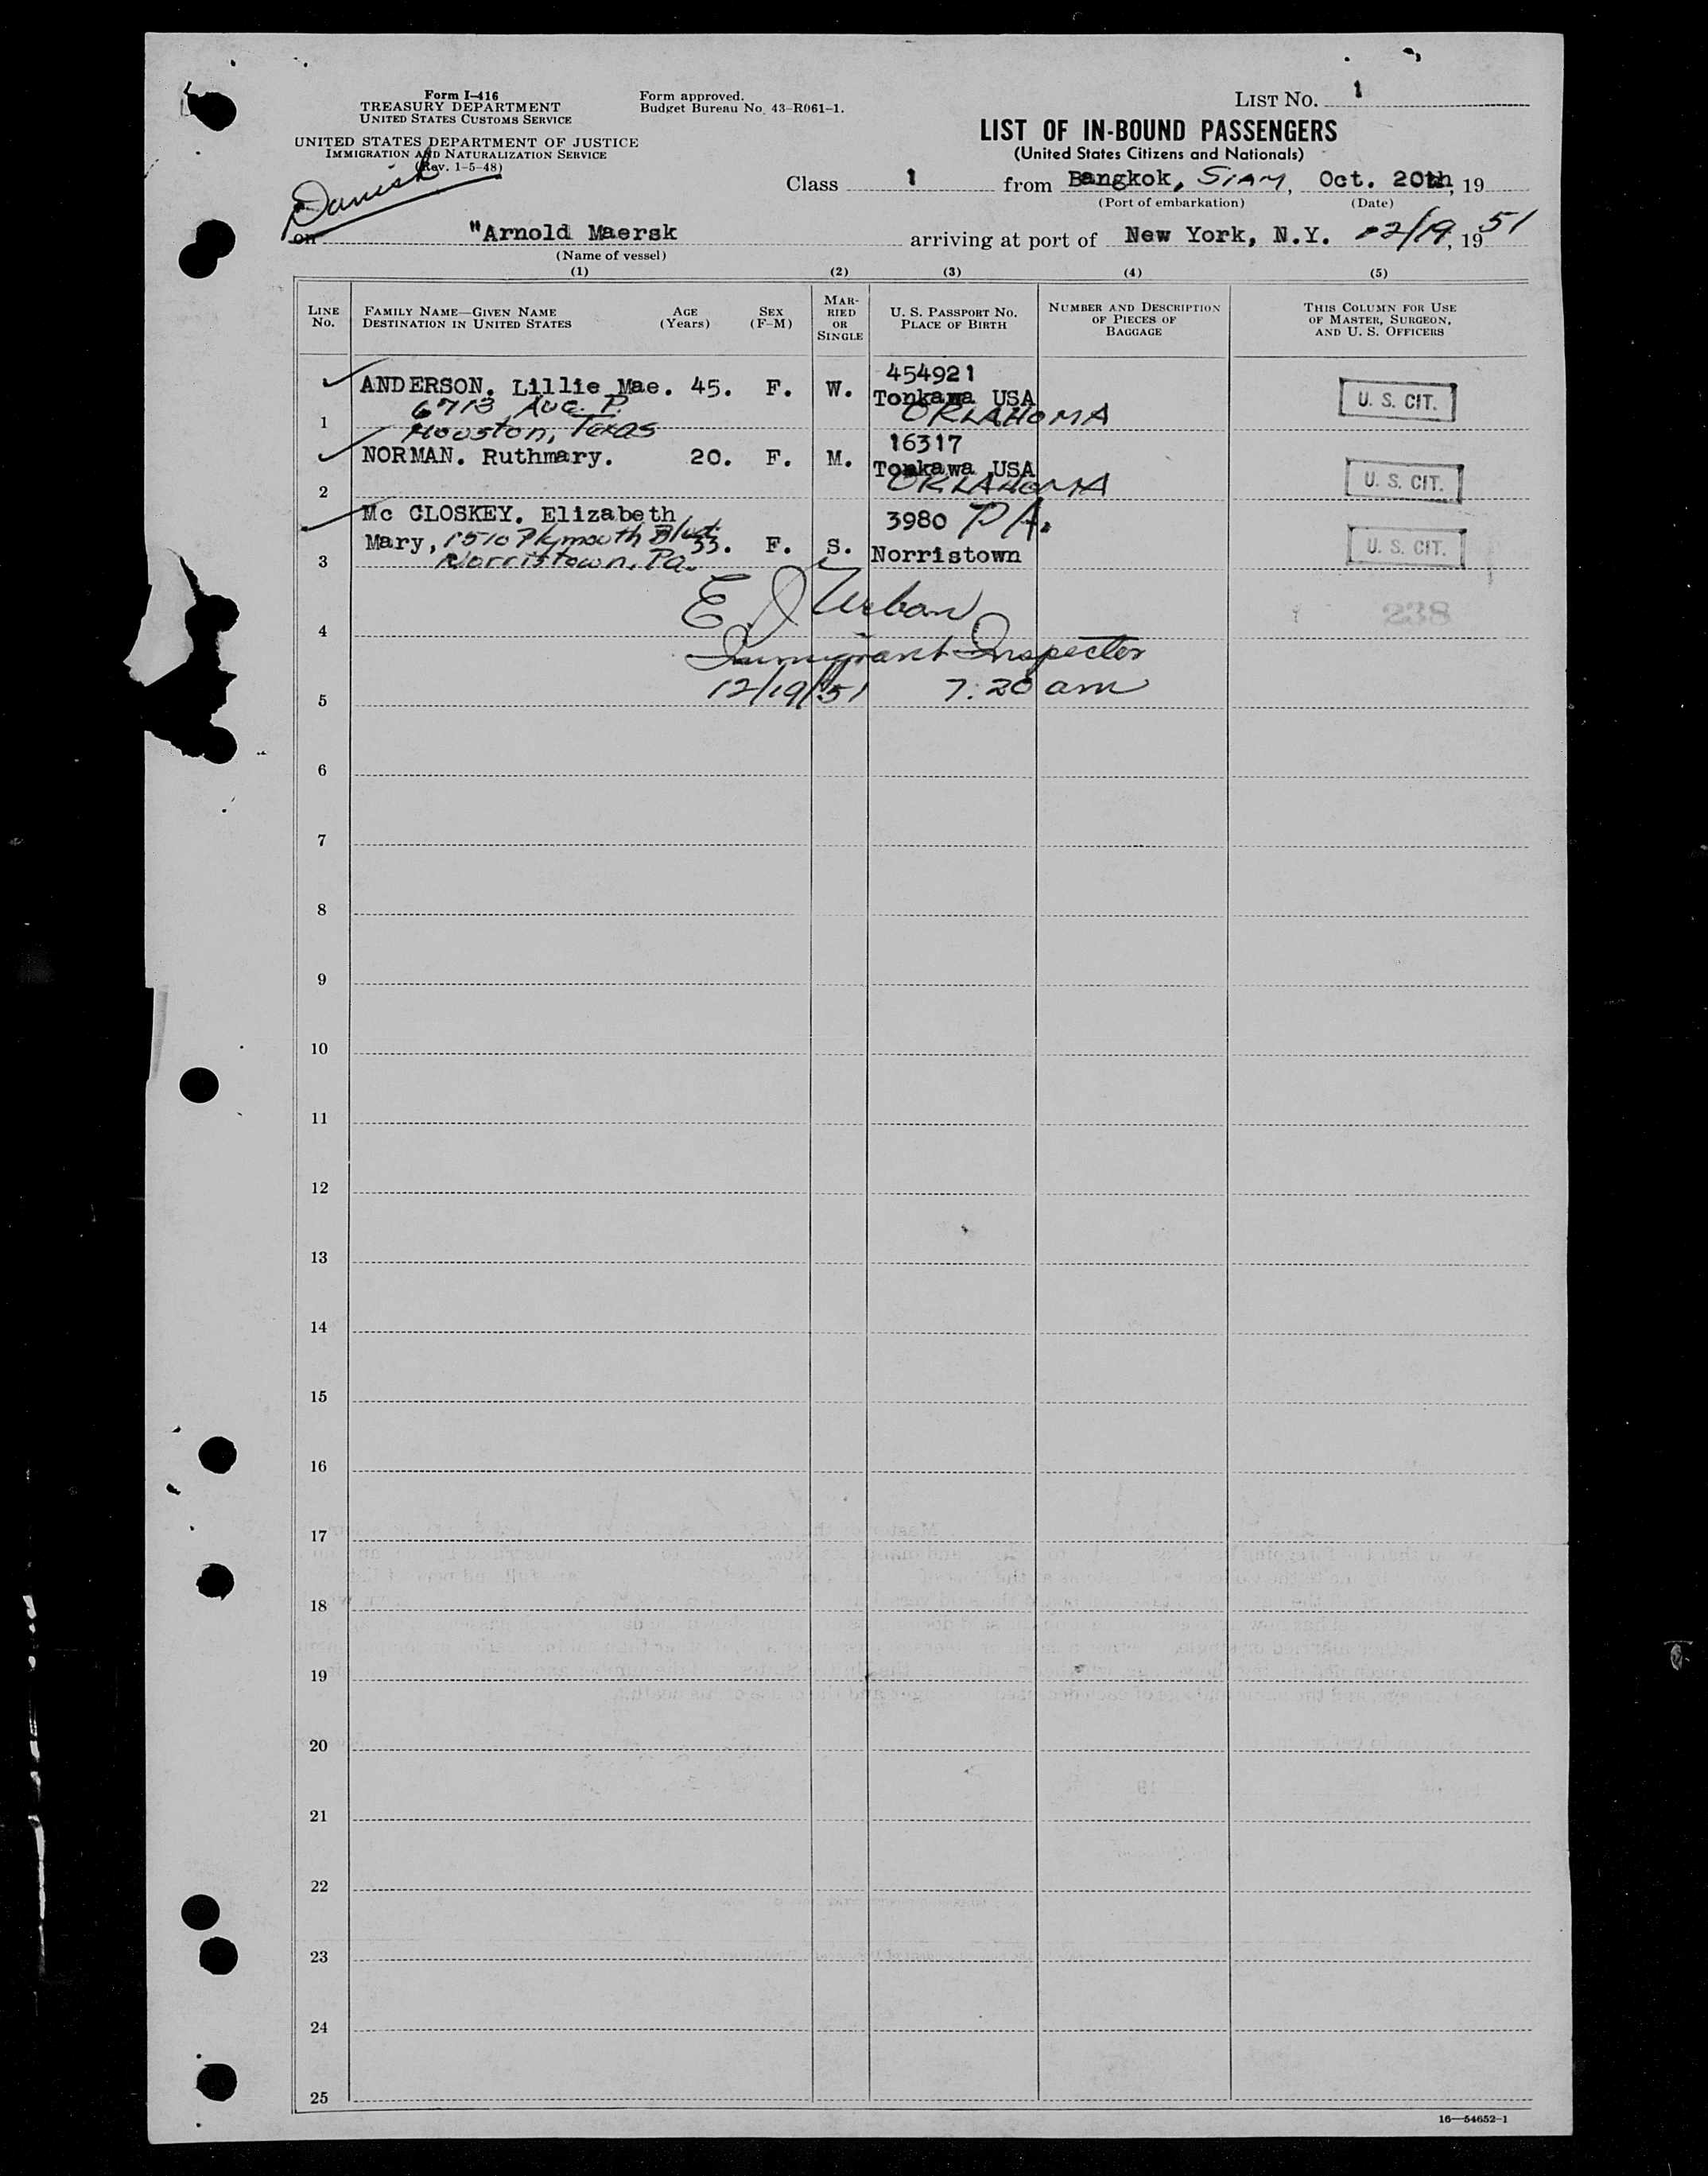 Form I-416
TREASURY DEPARTMENT
UNITED STATES CUSTOMS SERVICE
UNITED STATES DEPARTMENT OF JUSTICE
IMMIGRATION AND NATURALIZATION SERVICE
(Rev. 1-5-48)
Form approved.
Budget Bureau No. 43-R061-1.
LIST NO. 1
LIST OF IN-BOUND PASSENGERS
(United States Citizens and Nationals)
Class 1 from Bangkok, SIAM, Oct. 20th, 19
(Port of embarkation) (Date)
Danish
on "Arnold Maersk arriving at port of New York, N.Y. 12/19, 1951
(Name of vessel)
(1) (2) (3) (4) (5)
LINE No.
FAMILY NAME—GIVEN NAME
DESTINATION IN UNITED STATES
AGE
(Years)
SEX
(F-M)
MARRIED
OR
SINGLE
U. S. PASSPORT NO.
PLACE OF BIRTH
NUMBER AND DESCRIPTION
OF PIECES OF
BAGGAGE
THIS COLUMN FOR USE
OF MASTER, SURGEON,
AND U. S. OFFICERS
454921
ANDERSON. Lillie Mae. 45. F. W. Tonkawa USA U. S. CIT.
6713 Ave. P. OKLAHOMA
1 Houston, Texas
16317
NORMAN. Ruthmary. 20. F. M. Tonkawa USA U. S. CIT.
2 OKLAHOMA
Mc CLOSKEY. Elizabeth 3980 PA.
Mary, 1510 Plymouth Blvd. 33. F. S. Norristown U. S. CIT.
3 Norristown, Pa.
E. J. Urban
238
4
Immigrant Inspector
5 12/19/51 7:20 am
6
7
8
9
10
11
12
13
14
15
16
17
18
19
20
21
22
23
24
25
16—54652-1